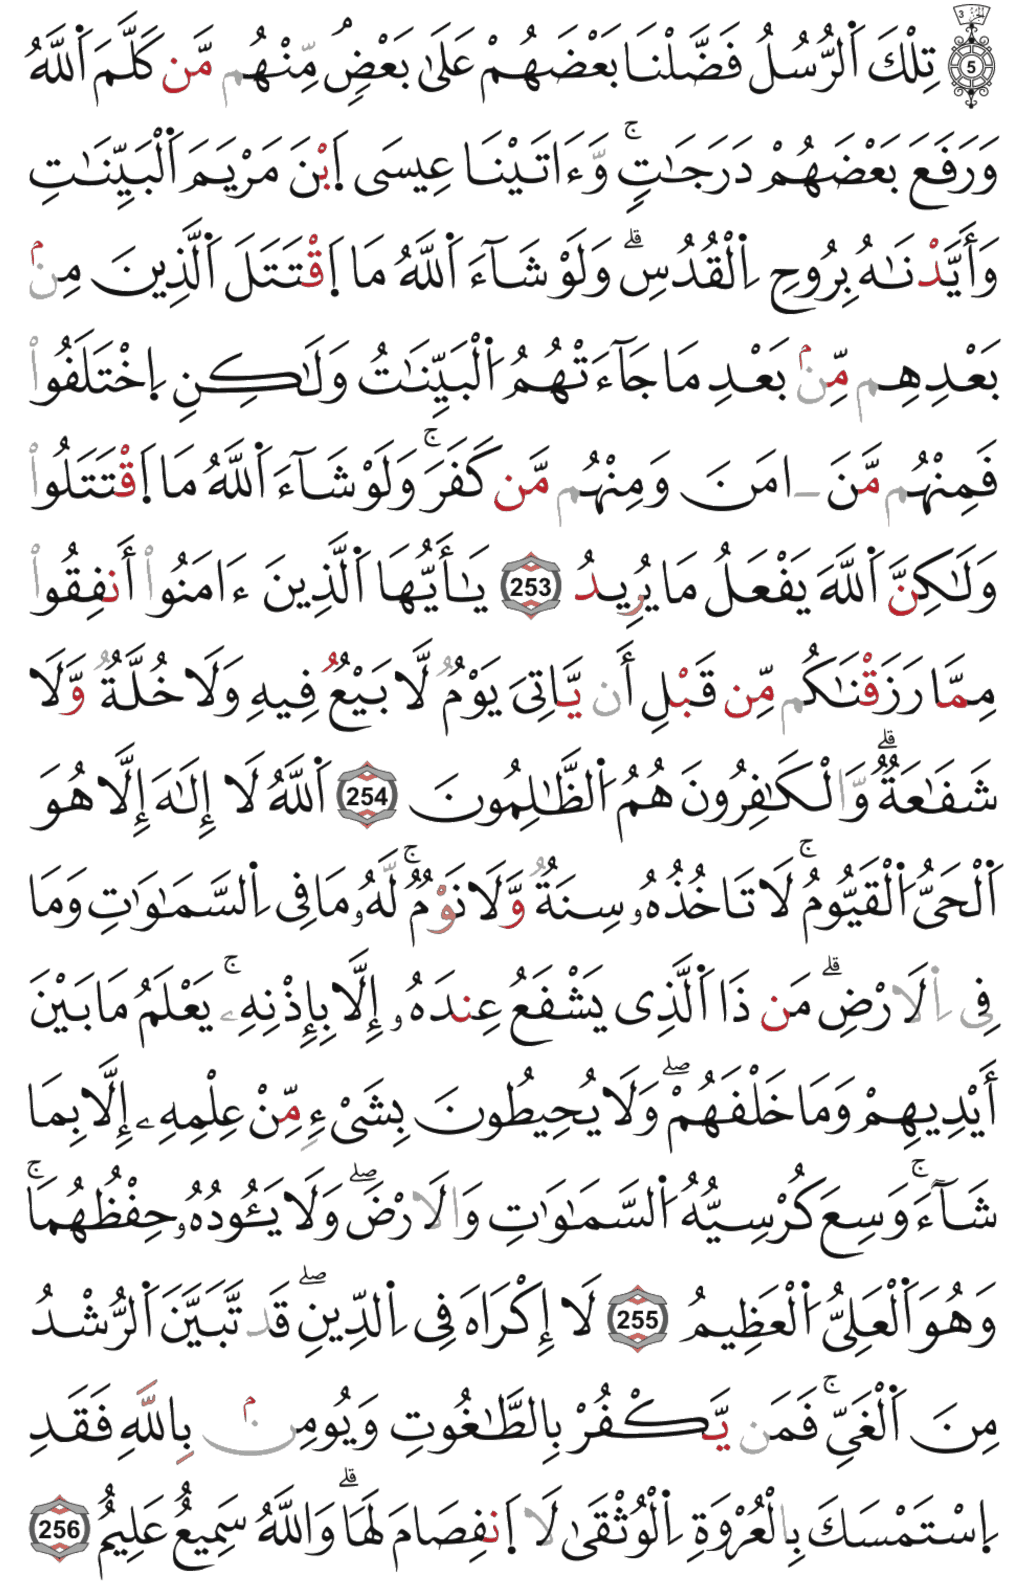 الجزء 3 5 تِلْكَ اَ۬لرُّسُلُ فَضَّلْنَا بَعْضَهُمْ عَلَىٰ بَعْضٖ مِّنْهُم مَّن كَلَّمَ اَ۬للَّهُ
وَرَفَعَ بَعْضَهُمْ دَرَجَٰتٖۚ وَءَاتَيْنَا عِيسَى اَ۪بْنَ مَرْيَمَ اَ۬لْبَيِّنَٰتِ
وَأَيَّدْنَٰهُ بِرُوحِ اِ۬لْقُدُسِۗ وَلَوْ شَآءَ اَ۬للَّهُ مَا اَ۪قْتَتَلَ اَ۬لَّذِينَ مِنۢ
بَعْدِهِم مِّنۢ بَعْدِ مَا جَآءَتْهُمُ اُ۬لْبَيِّنَٰتُ وَلَٰكِنِ اِ۪خْتَلَفُواْ
فَمِنْهُم مَّنَ ـ امَنَ وَمِنْهُم مَّن كَفَرَۚ وَلَوْ شَآءَ اَ۬للَّهُ مَا اَ۪قْتَتَلُواْ
وَلَٰكِنَّ اَ۬للَّهَ يَفْعَلُ مَا يُرِيدُ 253 يَٰأَيُّهَا اَ۬لَّذِينَ ءَامَنُواْ أَنفِقُواْ
مِمَّا رَزَقْنَٰكُم مِّن قَبْلِ أَن يَّاتِىَ يَوْمٞ لَّا بَيْعٞ فِيهِ وَلَا خُلَّةٞ وَّلَا
شَفَٰعَةٞۗ وَالْكَٰفِرُونَ هُمُ اُ۬لظَّٰلِمُونَ 254 اَ۬للَّهُ لَا إِلَٰهَ إِلَّا هُوَ
اَ۬لْحَىُّ اُ۬لْقَيُّومُۚ لَا تَاخُذُهُۥ سِنَةٞ وَّلَا نَوْمٞۚ لَّهُۥ مَا فِى اِ۬لسَّمَٰوَٰتِ وَمَا
فِى اِ۬لَارْضِۗ مَن ذَا اَ۬لَّذِى يَشْفَعُ عِندَهُۥ إِلَّا بِإِذْنِهِۦۚ يَعْلَمُ مَا بَيْنَ
أَيْدِيهِمْ وَمَا خَلْفَهُمْۖ وَلَا يُحِيطُونَ بِشَىْءٖ مِّنْ عِلْمِهِۦ إِلَّا بِمَا
شَآءَۚ وَسِعَ كُرْسِيُّهُ اُ۬لسَّمَٰوَٰتِ وَالَارْضَۖ وَلَا يَـُٔودُهُۥ حِفْظُهُمَاۚ
وَهُوَ اَ۬لْعَلِىُّ اُ۬لْعَظِيمُ 255 لَا إِكْرَاهَ فِى اِ۬لدِّينِۖ قَد تَّبَيَّنَ اَ۬لرُّشْدُ
مِنَ اَ۬لْغَىِّۚ فَمَن يَّكْفُرْ بِالطَّٰغُوتِ وَيُومِنۢ بِاللَّهِ فَقَدِ
اِ۪سْتَمْسَكَ بِالْعُرْوَةِ اِ۬لْوُثْقَىٰ لَا اَ۪نفِصَامَ لَهَاۗ وَاللَّهُ سَمِيعٌ عَلِيمٌ 256